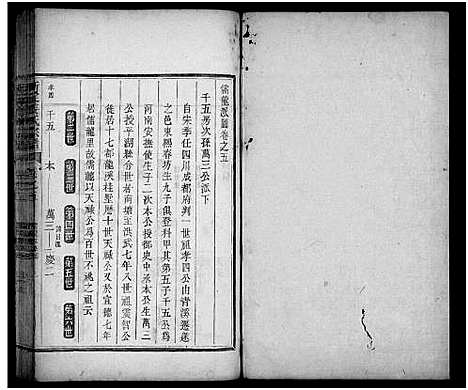 儒龍派圖卷之五
千五房次孫萬三公派下
自宋季任四川成都府判一世祖孝四公由青溪遷蓮
之邑東賜春坊生九子俱登科甲其第五子千五公爲
河南安撫使生子二次本公授都史中丞本公生萬三
公授平湖縣分世者再傳至洪武七年八世祖雲智公
居十七都瀧溪桂墅曆十世天祿公又於宣德七年
起儒龍里故儒龍以天祿公爲百世不祧之祖云
第二世
第三世
第四世
第五世
第六世
千五
本
萬三
慶二